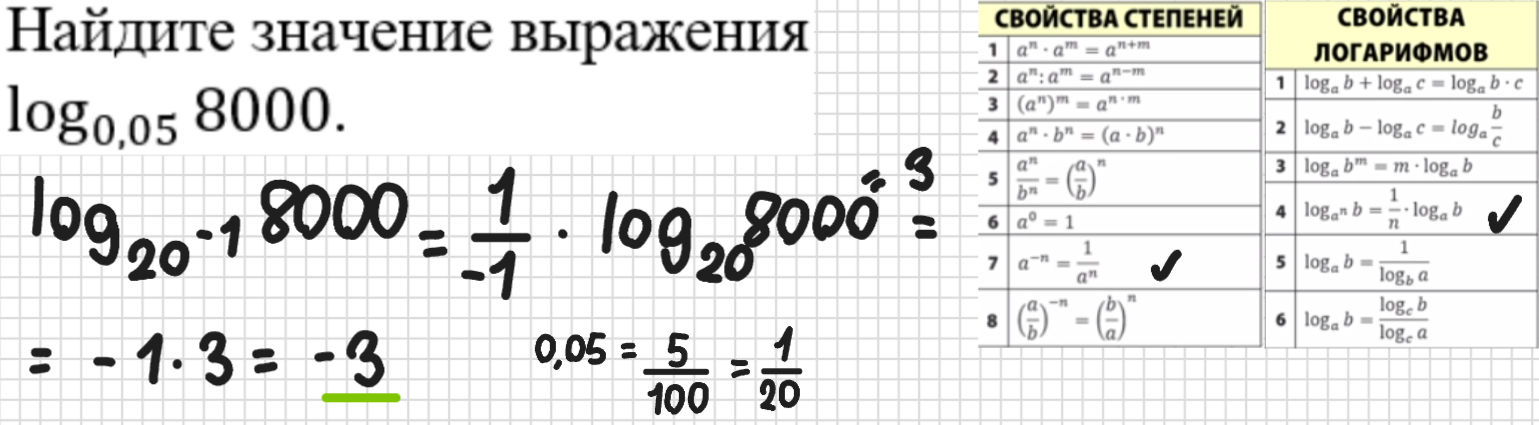 Найдите значение выражения
log₀,₀₅ 8000.
log₂₀⁻¹ 8000 = 1/-1 · log₂₀ 8000 = 3 =
= - 1 · 3 = -3
0,05 = 5/100 = 1/20
СВОЙСТВА СТЕПЕНЕЙ
1 aⁿ · aᵐ = aⁿ⁺ᵐ
2 aⁿ : aᵐ = aⁿ⁻ᵐ
3 (aⁿ)ᵐ = aⁿ·ᵐ
4 aⁿ · bⁿ = (a · b)ⁿ
5 aⁿ/bⁿ = (a/b)ⁿ
6 a⁰ = 1
7 a⁻ⁿ = 1/aⁿ ✓
8 (a/b)⁻ⁿ = (b/a)ⁿ
СВОЙСТВА
ЛОГАРИФМОВ
1 logₐ b + logₐ c = logₐ b · c
2 logₐ b − logₐ c = logₐ b/c
3 logₐ bᵐ = m · logₐ b
4 log_aⁿ b = 1/n · logₐ b ✓
5 logₐ b = 1/log_b a
6 logₐ b = log_c b/log_c a